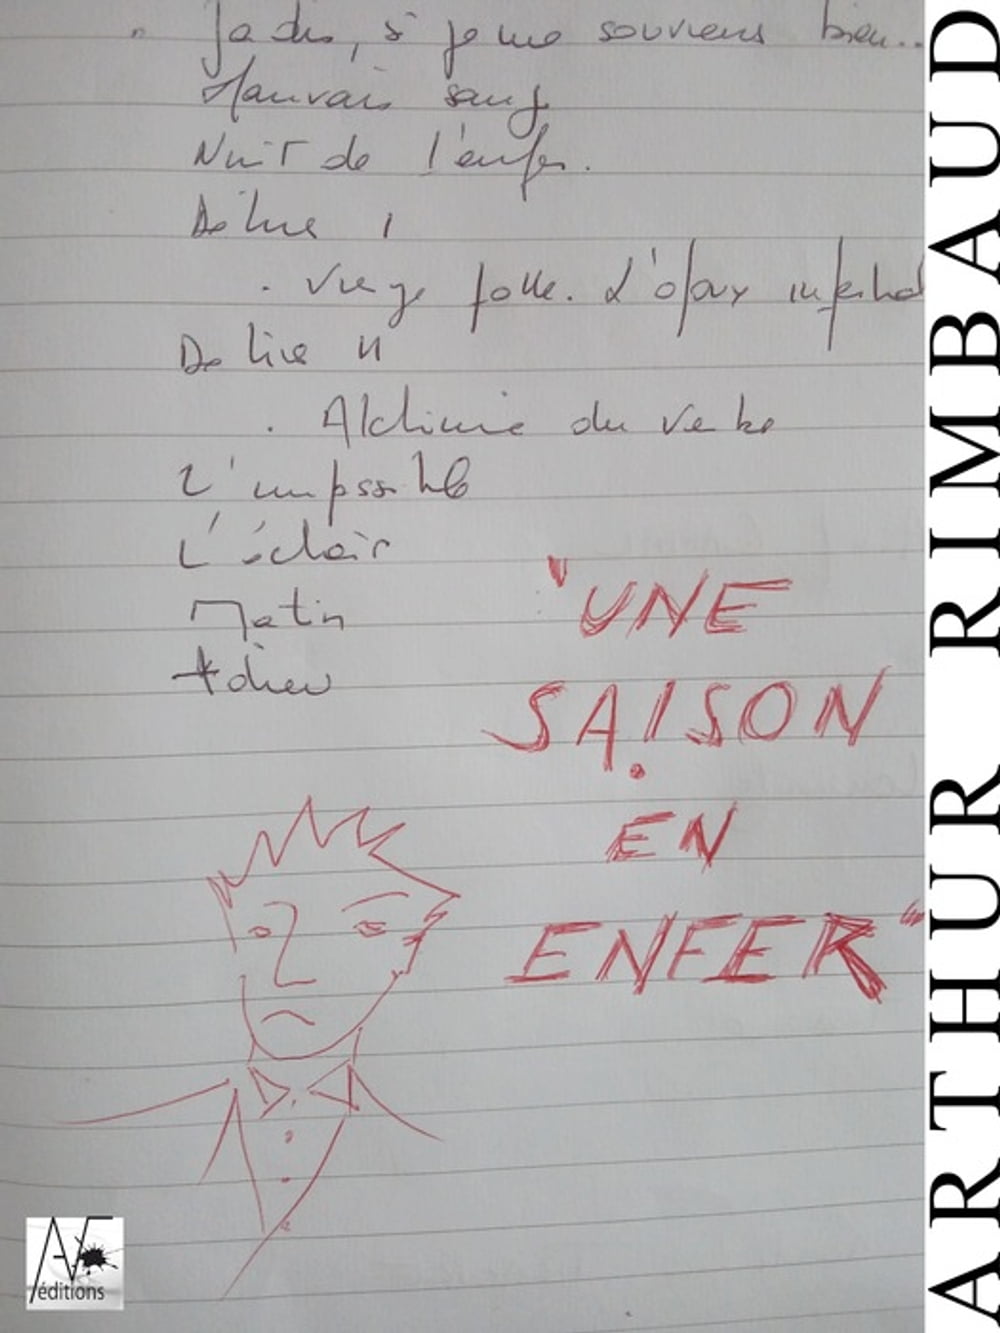 " Jadis, si je me souviens bien...
Mauvais sang
Nuit de l'enfer.
Délire I
. Vierge folle. L'époux infernal
Délire II
. Alchimie du verbe
L'impossible
L'éclair
Matin
Adieu
"UNE
SAISON
EN
ENFER"
ARTHUR RIMBAUD
AF
/éditions